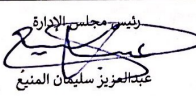 رئيس مجلس الإدارة
عبدالعزيز سليمان المنيع